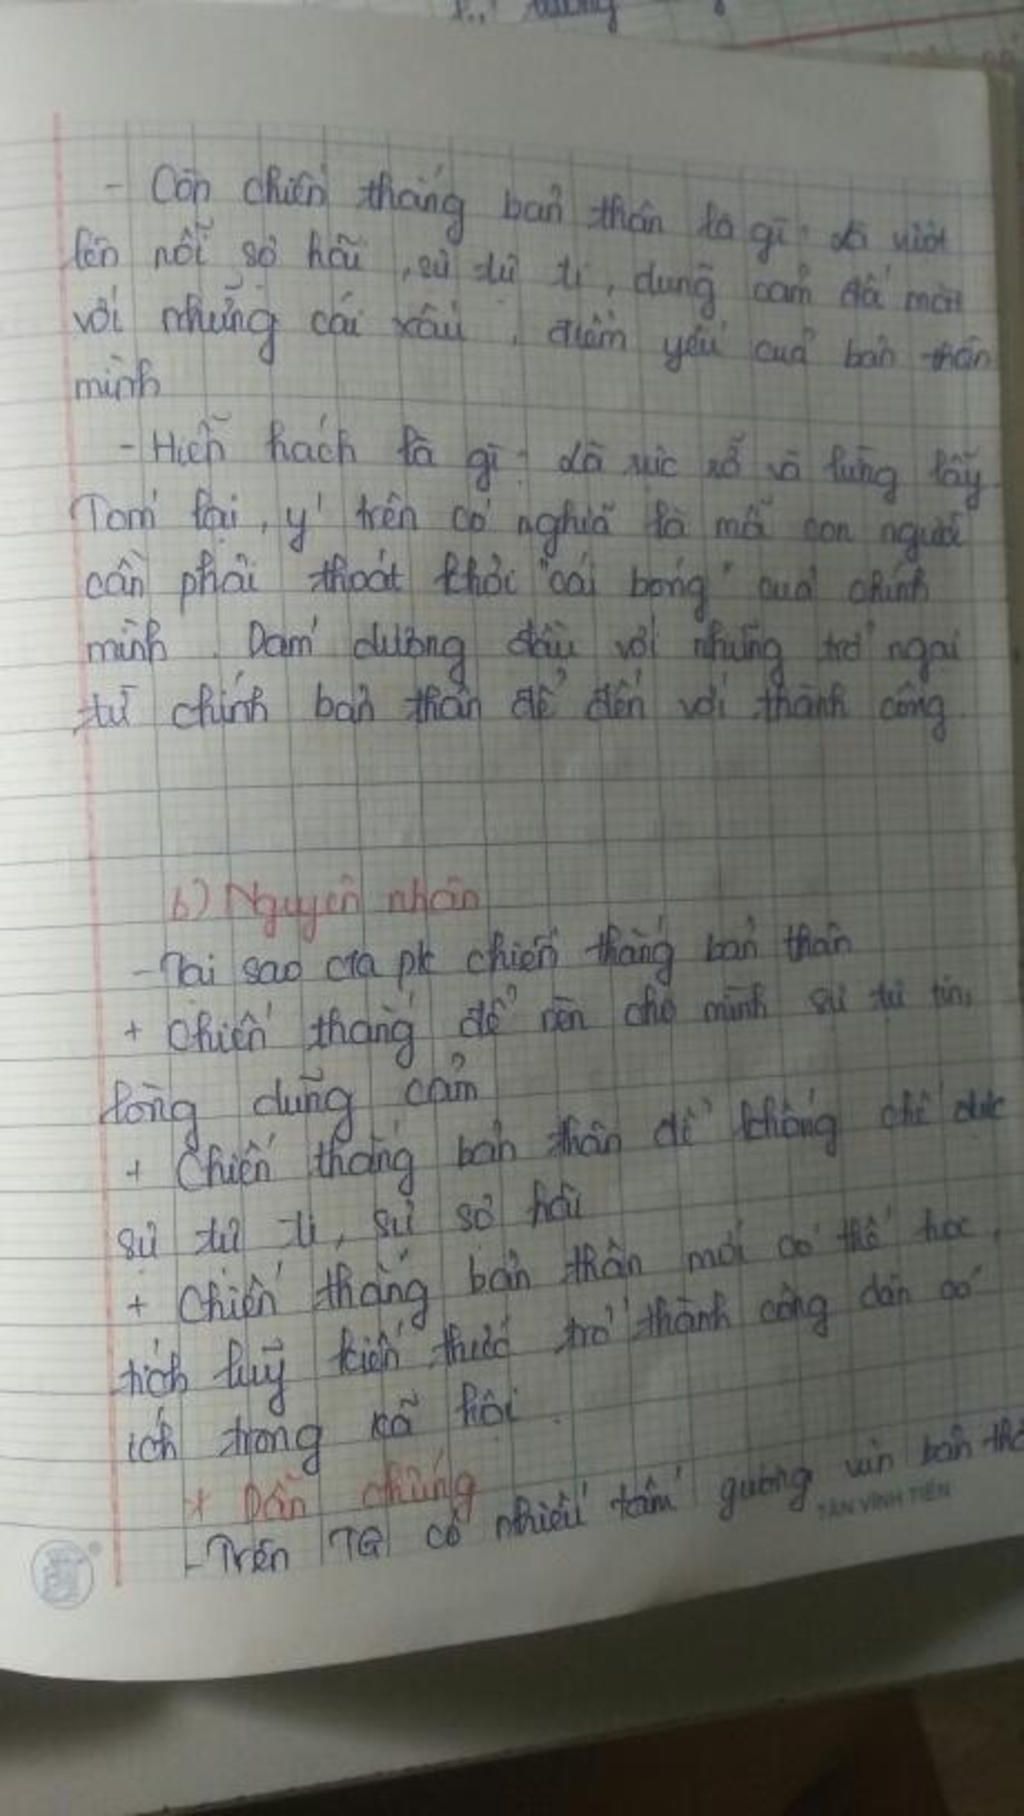 - Còn chiến thắng bản thân là gì: là vượt
lên nỗi sợ hãi, sự tự ti, dung cảm đối mặt
với những cái xấu, điểm yếu của bản thân
mình
- Hiển hách là gì: là rực rỡ và lừng lẫy
Tóm lại, ý trên có nghĩa là mỗi con người
cần phải thoát khỏi "cái bóng" của chính
mình. Dám đương đầu với những trở ngại
từ chính bản thân để đến với thành công
b) Nguyên nhân
- Tại sao cta pk chiến thắng bản thân
+ Chiến thắng để rèn cho mình sự tự tin,
lòng dũng cảm
+ Chiến thắng bản thân để khống chế đc
sự tự ti, sự sợ hãi
+ Chiến thắng bản thân mới có thể học,
tích luỹ kiến thức trở thành công dân có
ích trong xã hội.
* Dẫn chứng
- Trên TG có nhiều tấm gương bản
TÂN VĨNH TIẾN